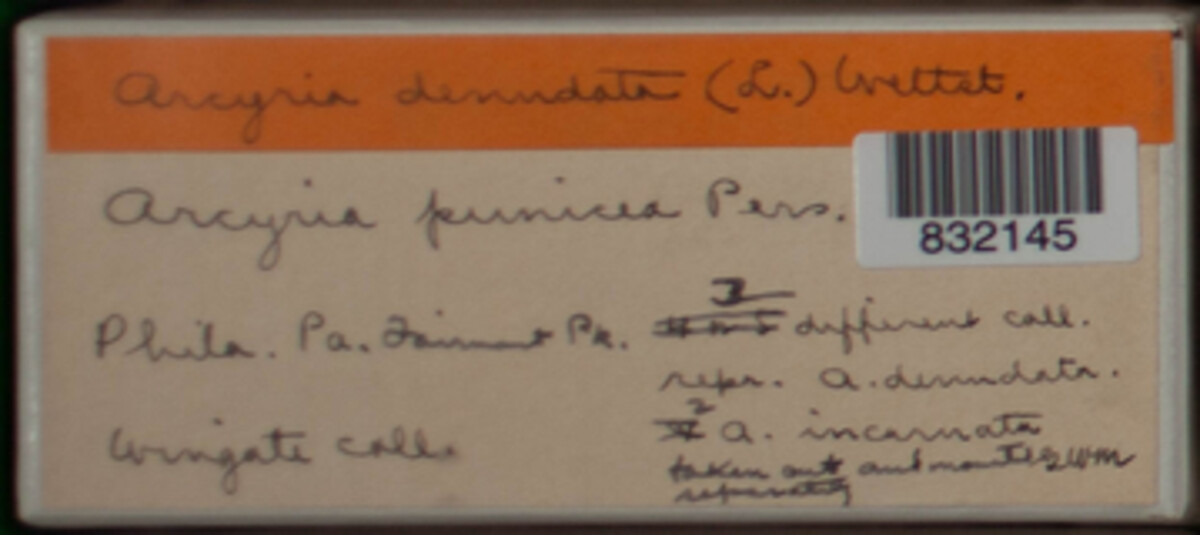 Arcyria denudata (L.) Wettst.
Arcyria punicea Pers.
832145
Phila. Pa. Fairmount Pk.
different coll.
repr. A. denudata.
Wingate coll.
2 A. incarnata
taken out and mounted GWM
separately